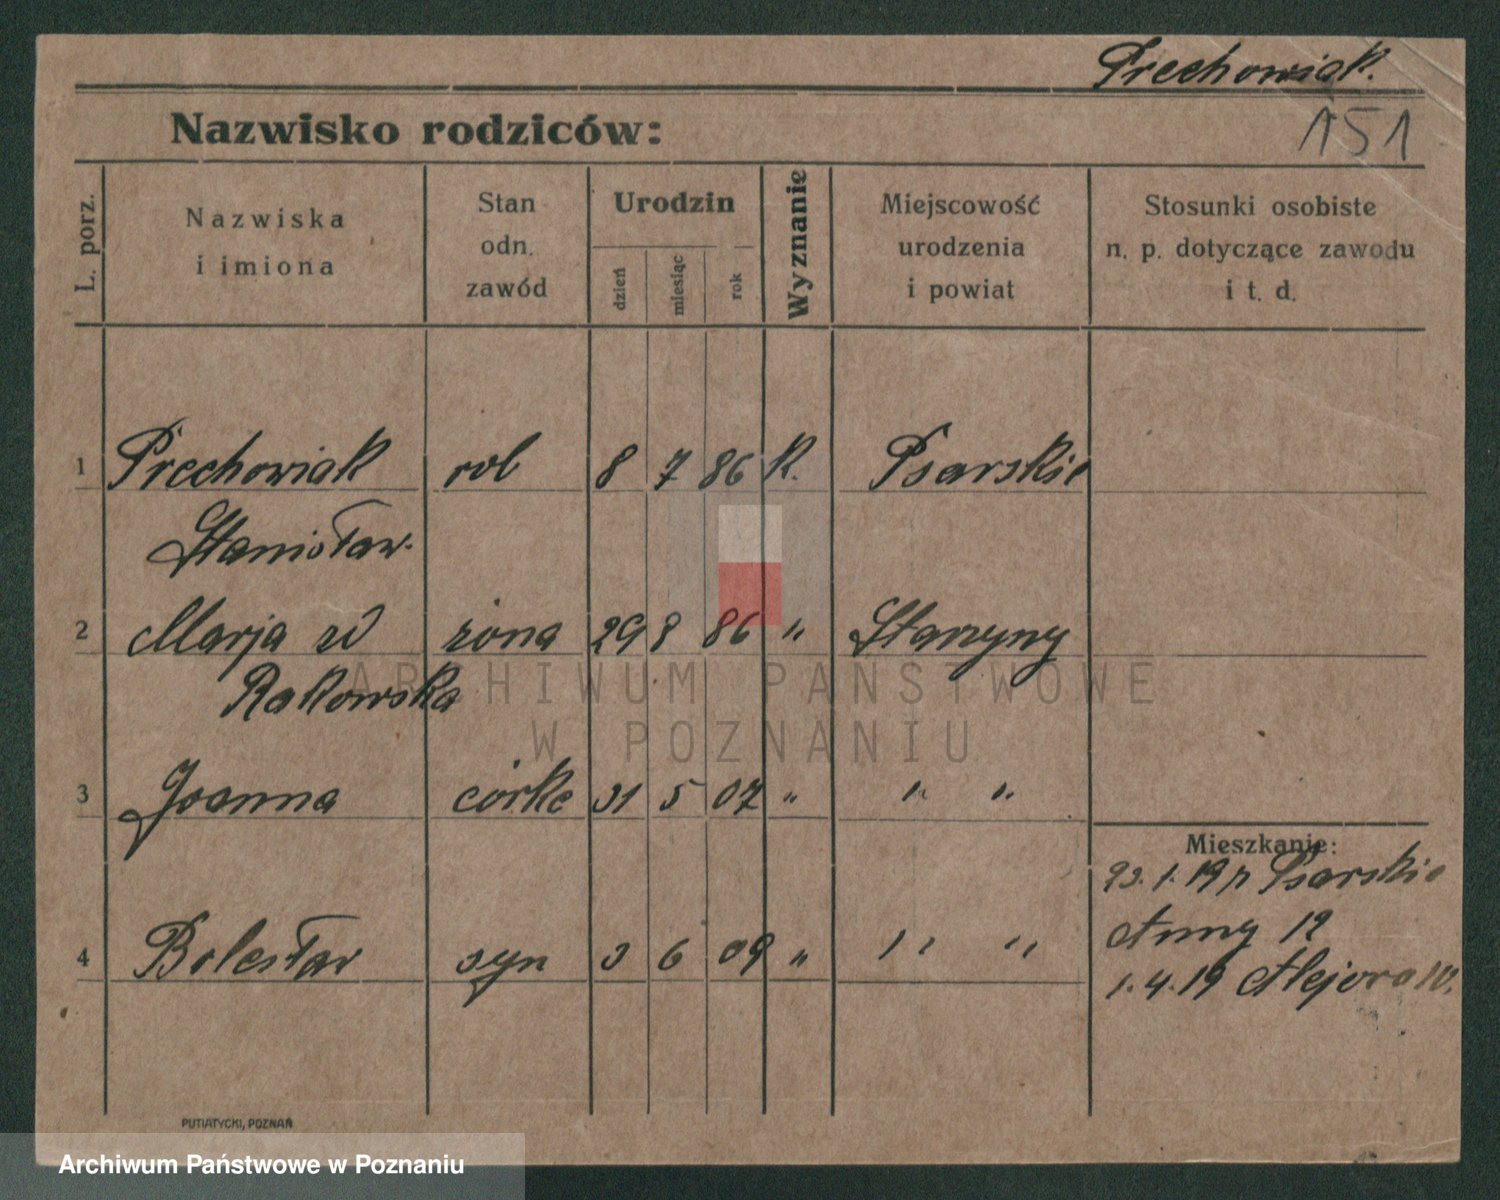 Prechowiak.
Nazwisko rodziców:
151
L. porz.
Nazwiska
i imiona
Stan
odn.
zawód
Urodzin
dzień
miesiąc
rok
Wyznanie
Miejscowość
urodzenia
i powiat
Stosunki osobiste
n. p. dotyczące zawodu
i t. d.
1 Prechowiak rol 8 7 86 K. Psarskie
Stanisław.
2 Marja z d żona 29 8 86 " Starzyny
Rakowska
3 Joanna córke 31 5 07 " " "
Mieszkanie:
23.1.19 z Psarskie
Anny 12
4 Bolesław syn 3 6 09 " " "
1.4.19 Alejowa 10.
PUTIATYCKI, POZNAŃ
ARCHIWUM PAŃSTWOWE
W POZNANIU
Archiwum Państwowe w Poznaniu